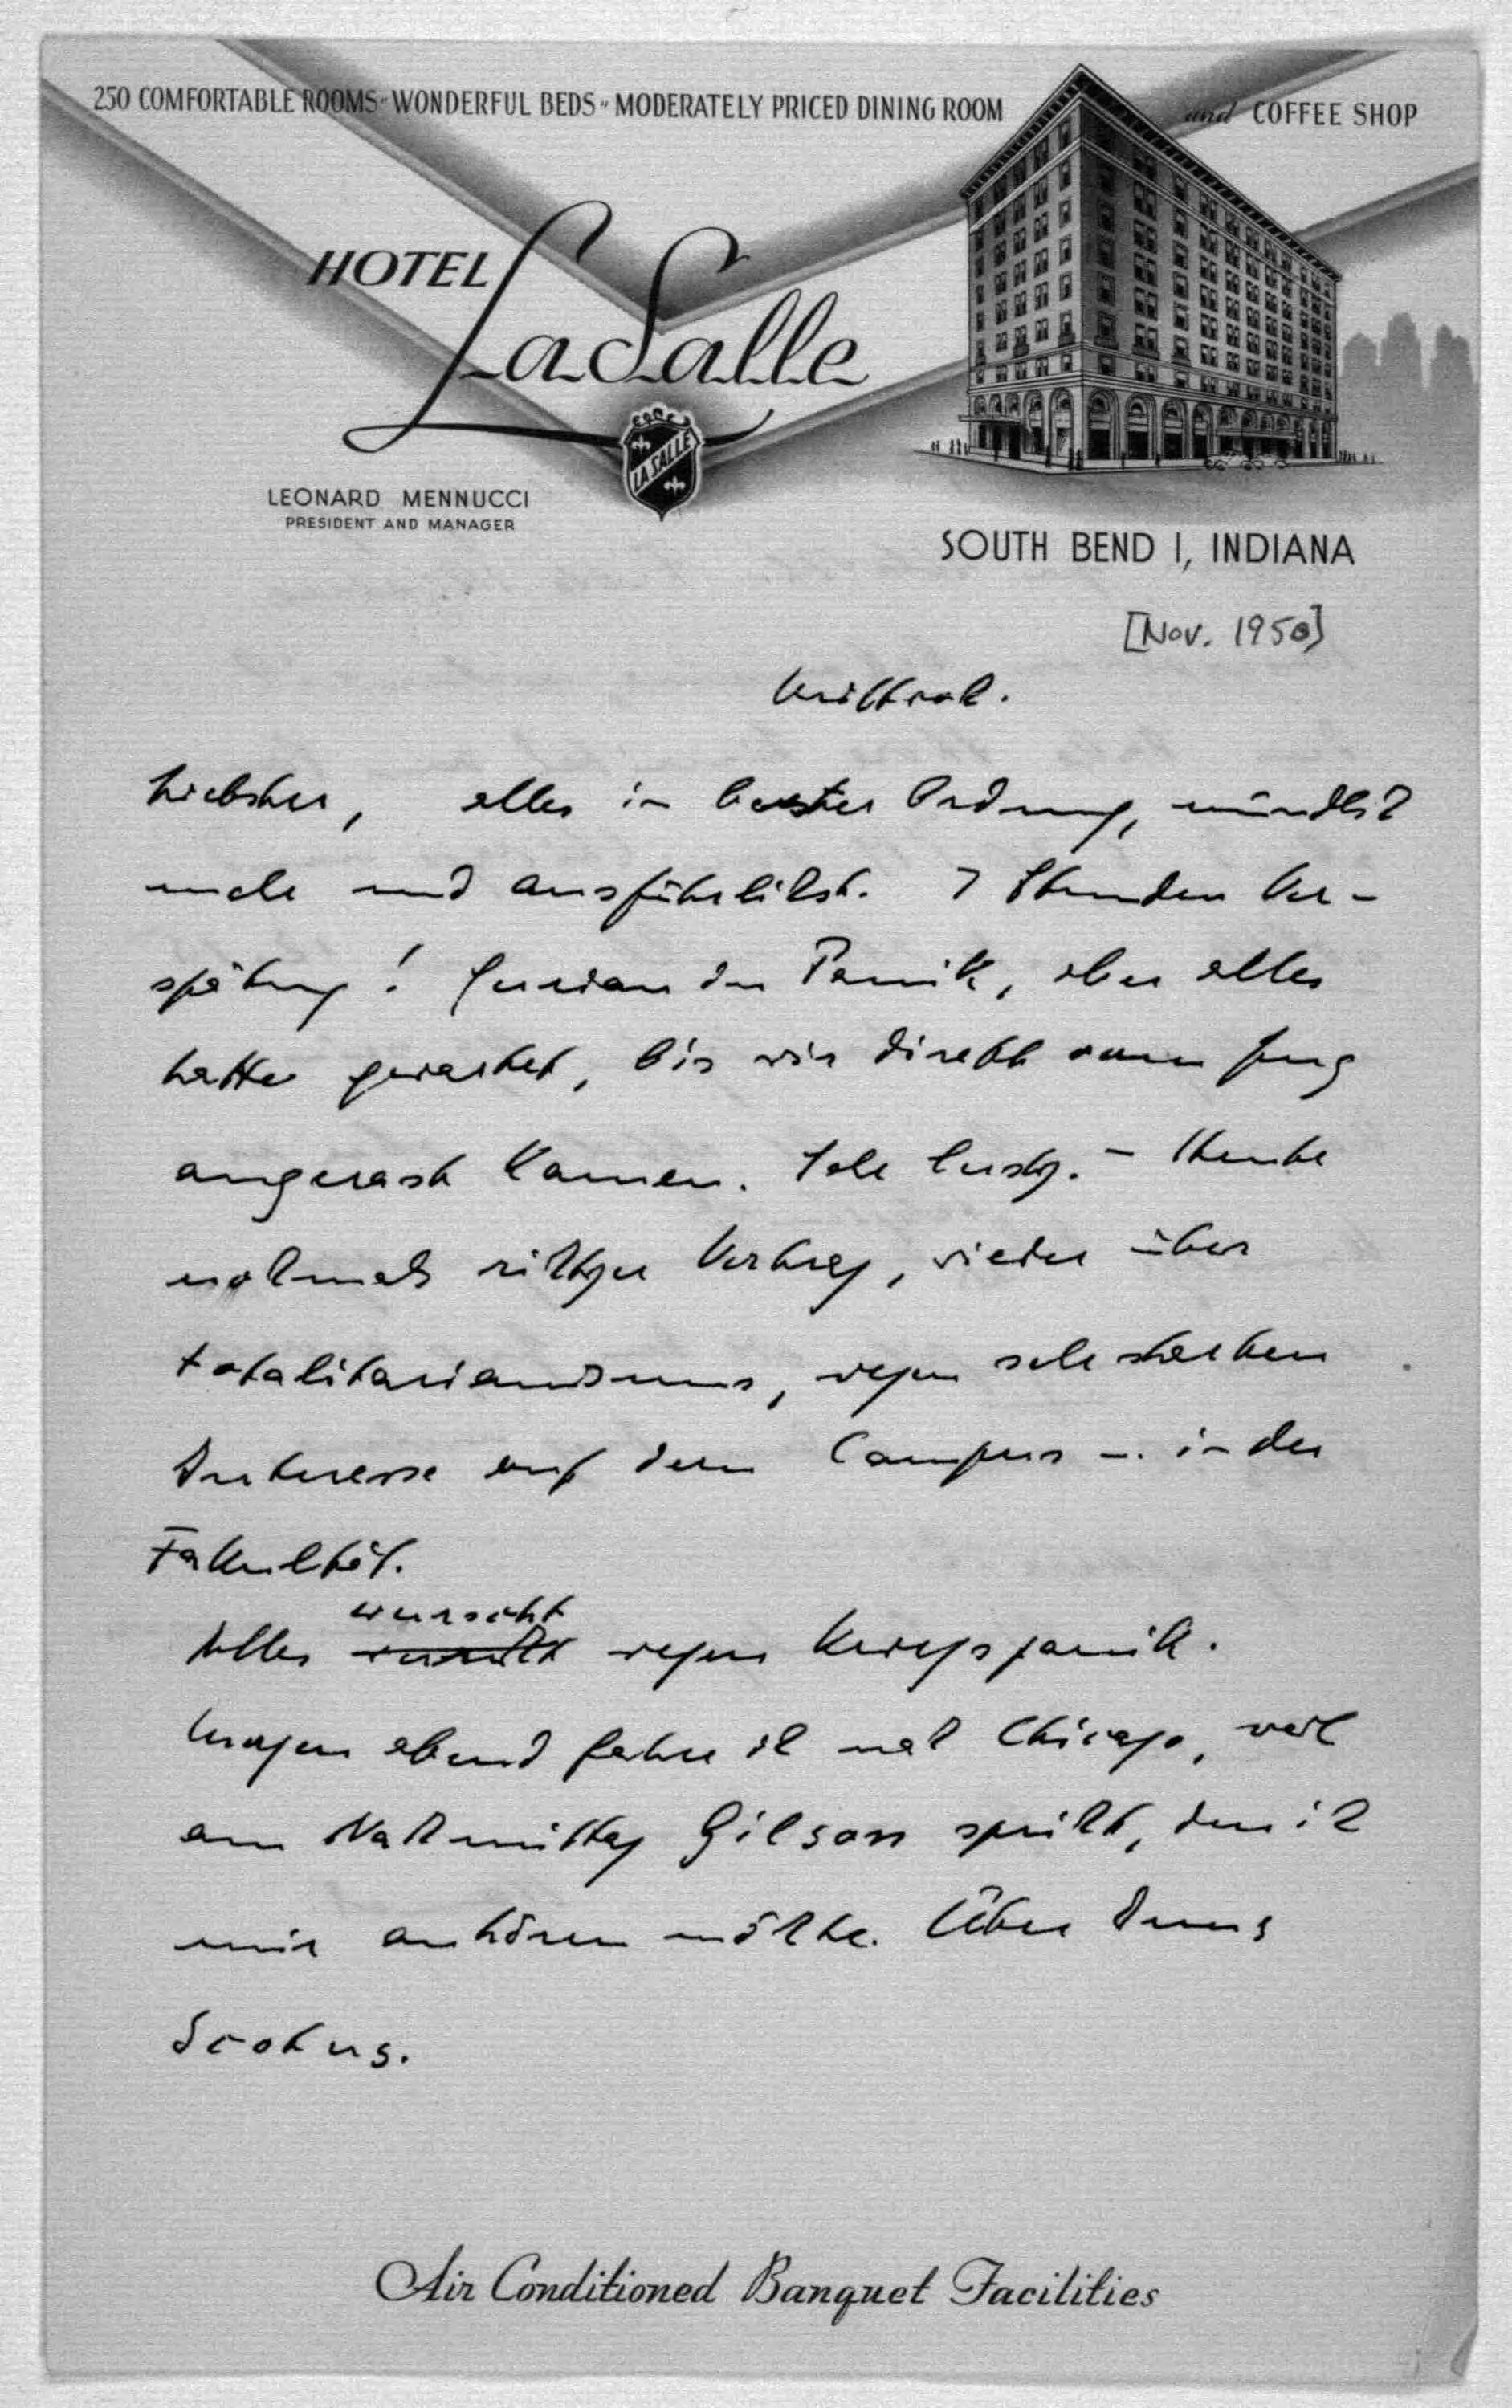 250 COMFORTABLE ROOMS - WONDERFUL BEDS - MODERATELY PRICED DINING ROOM and COFFEE SHOP
HOTEL
LaSalle
LA SALLE
LEONARD MENNUCCI
PRESIDENT AND MANAGER
SOUTH BEND 1, INDIANA
[Nov. 1950]
Mittwoch.
Liebster, alles in bester Ordnung, mündlich
mehr und ausführlichst. 7 Stunden Ver-
spätung! Gurian in Panik, aber alles
hatte gewartet, bis wir direkt vom Zug
angerast kamen. Sehr lustig. – Heute
nochmals richtiger Vortrag, wieder über
totalitarianismus, wegen sehr starkem
Interesse auf dem Campus u. in der
Fakultät.
wurscht
Alles wegen Kriegspanik.
Morgen abend fahre ich nach Chicago, weil
am Nachmittag Gilson spricht, den ich
mir anhören möchte. Über Duns
Scotus.
Air Conditioned Banquet Facilities